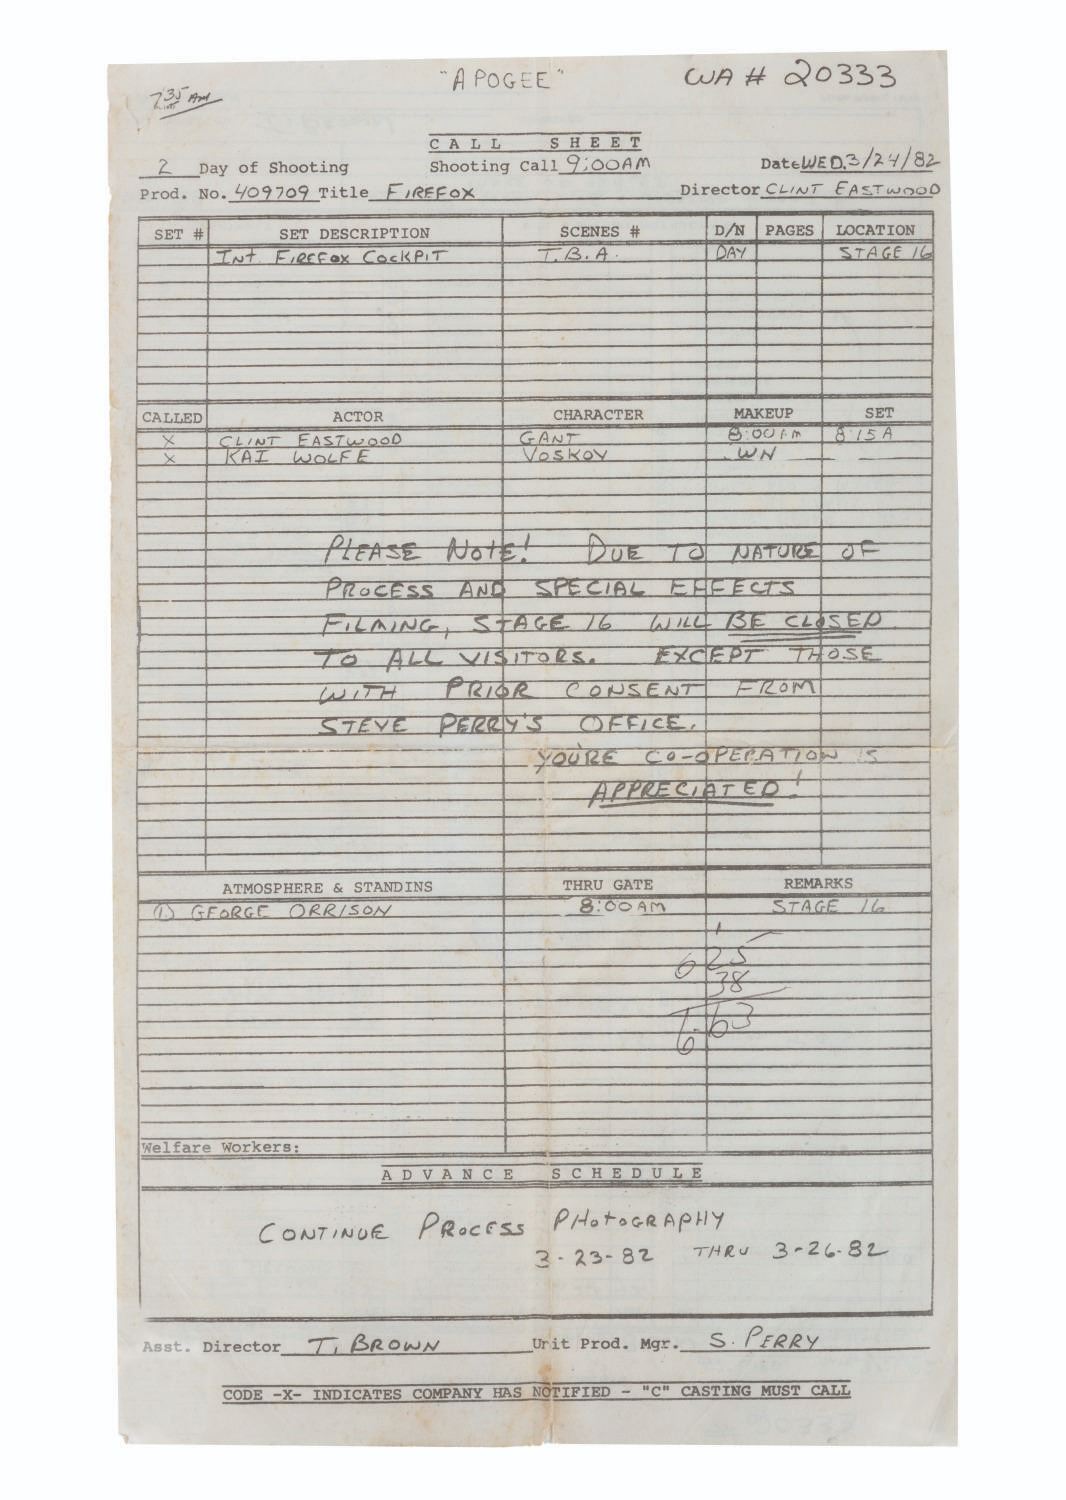 "APOGEE" WA # 20333
7 35 AM
CALL SHEET
2 Day of Shooting Shooting Call 9:00AM Date WED. 3/24/82
Prod. No. 409709 Title FIREFOX Director CLINT EASTWOOD
SET # SET DESCRIPTION SCENES # D/N PAGES LOCATION
Int FIREFOX COCKPIT T.B.A. DAY STAGE 16
CALLED ACTOR CHARACTER MAKEUP SET
X CLINT EASTWOOD GANT 8:00AM 8:15A
X KAI WOLFE VOSKOV WN
PLEASE NOTE! DUE TO NATURE OF
PROCESS AND SPECIAL EFFECTS
FILMING, STAGE 16 WILL BE CLOSED
TO ALL VISITORS. EXCEPT THOSE
WITH PRIOR CONSENT FROM
STEVE PERRY'S OFFICE.
YOU'RE CO-OPERATION IS
APPRECIATED!
ATMOSPHERE & STANDINS THRU GATE REMARKS
1) GEORGE ORRISON 8:00AM STAGE 16
6 25
38
6.63
Welfare Workers:
ADVANCE SCHEDULE
CONTINUE PROCESS PHOTOGRAPHY
3-23-82 THRU 3-26-82
Asst. Director T. BROWN Unit Prod. Mgr. S. PERRY
CODE -X- INDICATES COMPANY HAS NOTIFIED - "C" CASTING MUST CALL